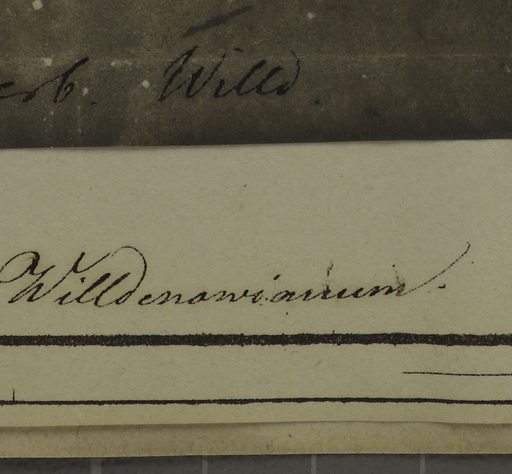 erb. Willd.
Willdenowianum.